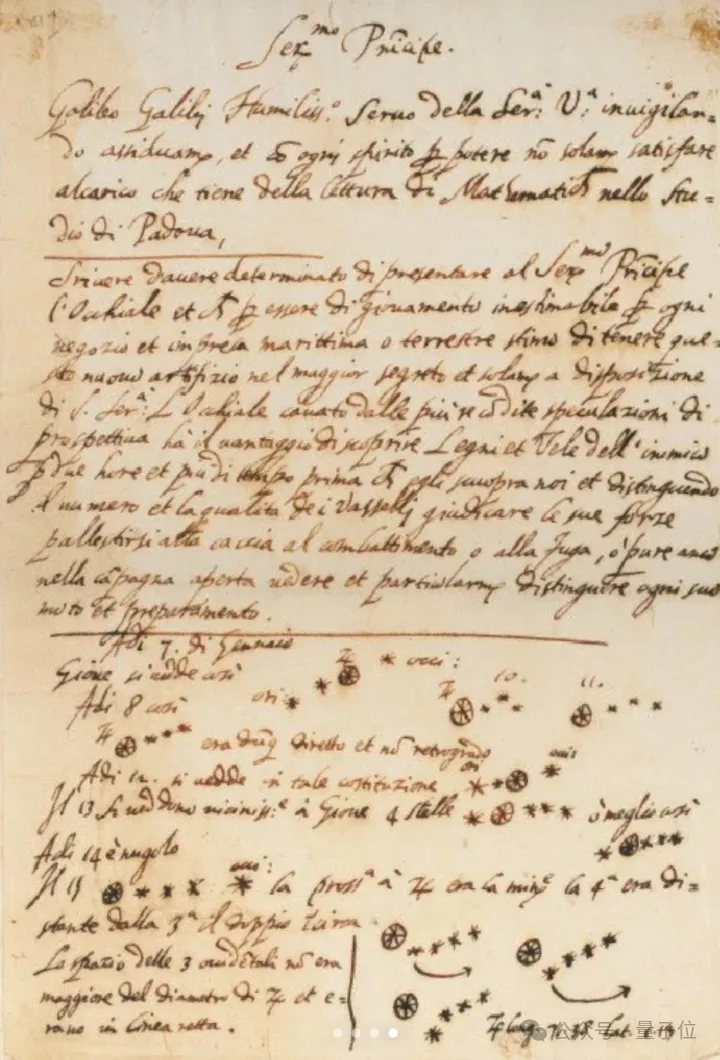 Ser.mo Prīcipe.
Galileo Galilei Humiliss.o Servo della Ser.a V.a invigilan=
do assiduam.e, et cō ogni spirito p̲ potere nō solam.e satisfare
al carico che tiene della lettura di Mathematich nello Stu=
dio di Padova,
Scrivere d'avere determinato di presentare al Ser.mo Prīcipe
l'Occhiale et ch p̲ essere di giovamento inestimabile p̲ ogni
negozio et impresa marittima o terrestre stimo di tenere que=
sto nuovo artifizio nel maggior segreto et solam.e a disposizione
di S. Ser.a L'Occhiale cavato dalle più recōdite speculazioni di
prospettiva ha il vantaggio di scoprire Legni et Vele dell'inimico
p̲ due hore et più di tempo prima ch egli scuopra noi et distinguendo
il numero et la qualità dei Vasselli giudicare le sue forze
pallestirsi alla caccia al combattimento o alla fuga, o pure anco
nella cāpagna aperta vedere et particolarm.e distinguere ogni suo
moto et preparamento.
Adi 7. di Gennaio
Gione si vede così occi:
Adi 8 così ori: 10. 11.
♃ era dūq diretto et nō retrogrado
Adi 12. si vedde in tale costituzione ori occi
Il 13 si veddono vicinis.e à Gione 4 stelle ò meglio così
Adi 14 è nugolo
Il 15 occi: la pross.a à ♃ era la min.e la 4.a era di=
stante dalla 3.a il doppio icirca
Lo spazio delle 3 occidētali nō era
maggiore del diametro di ♃ et e=
rano in linea retta.
♃ long. 71. 38 lat.
公众号·量子位